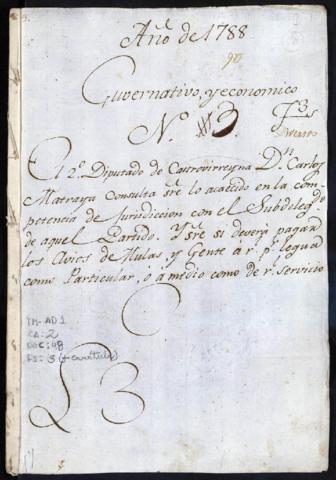 Año de 1788
90
Guvernativo, y economico
N.º 3
F 3
El 2.º Diputado de Castrovirreyna D.n Carlos
Matraya consulta sre lo acaecido en la com
petencia de Jurisdiccion con el Subdelegdo
de aquel Partido. Y sre si deverá pagar
los Avios de Mulas, y Gente á r.l p.r legua
como Particular, ó á medio como de r.l servicio
TM-AD1
CA: 2
DOC: 48
FS: 3 (+ carátula)
L 3